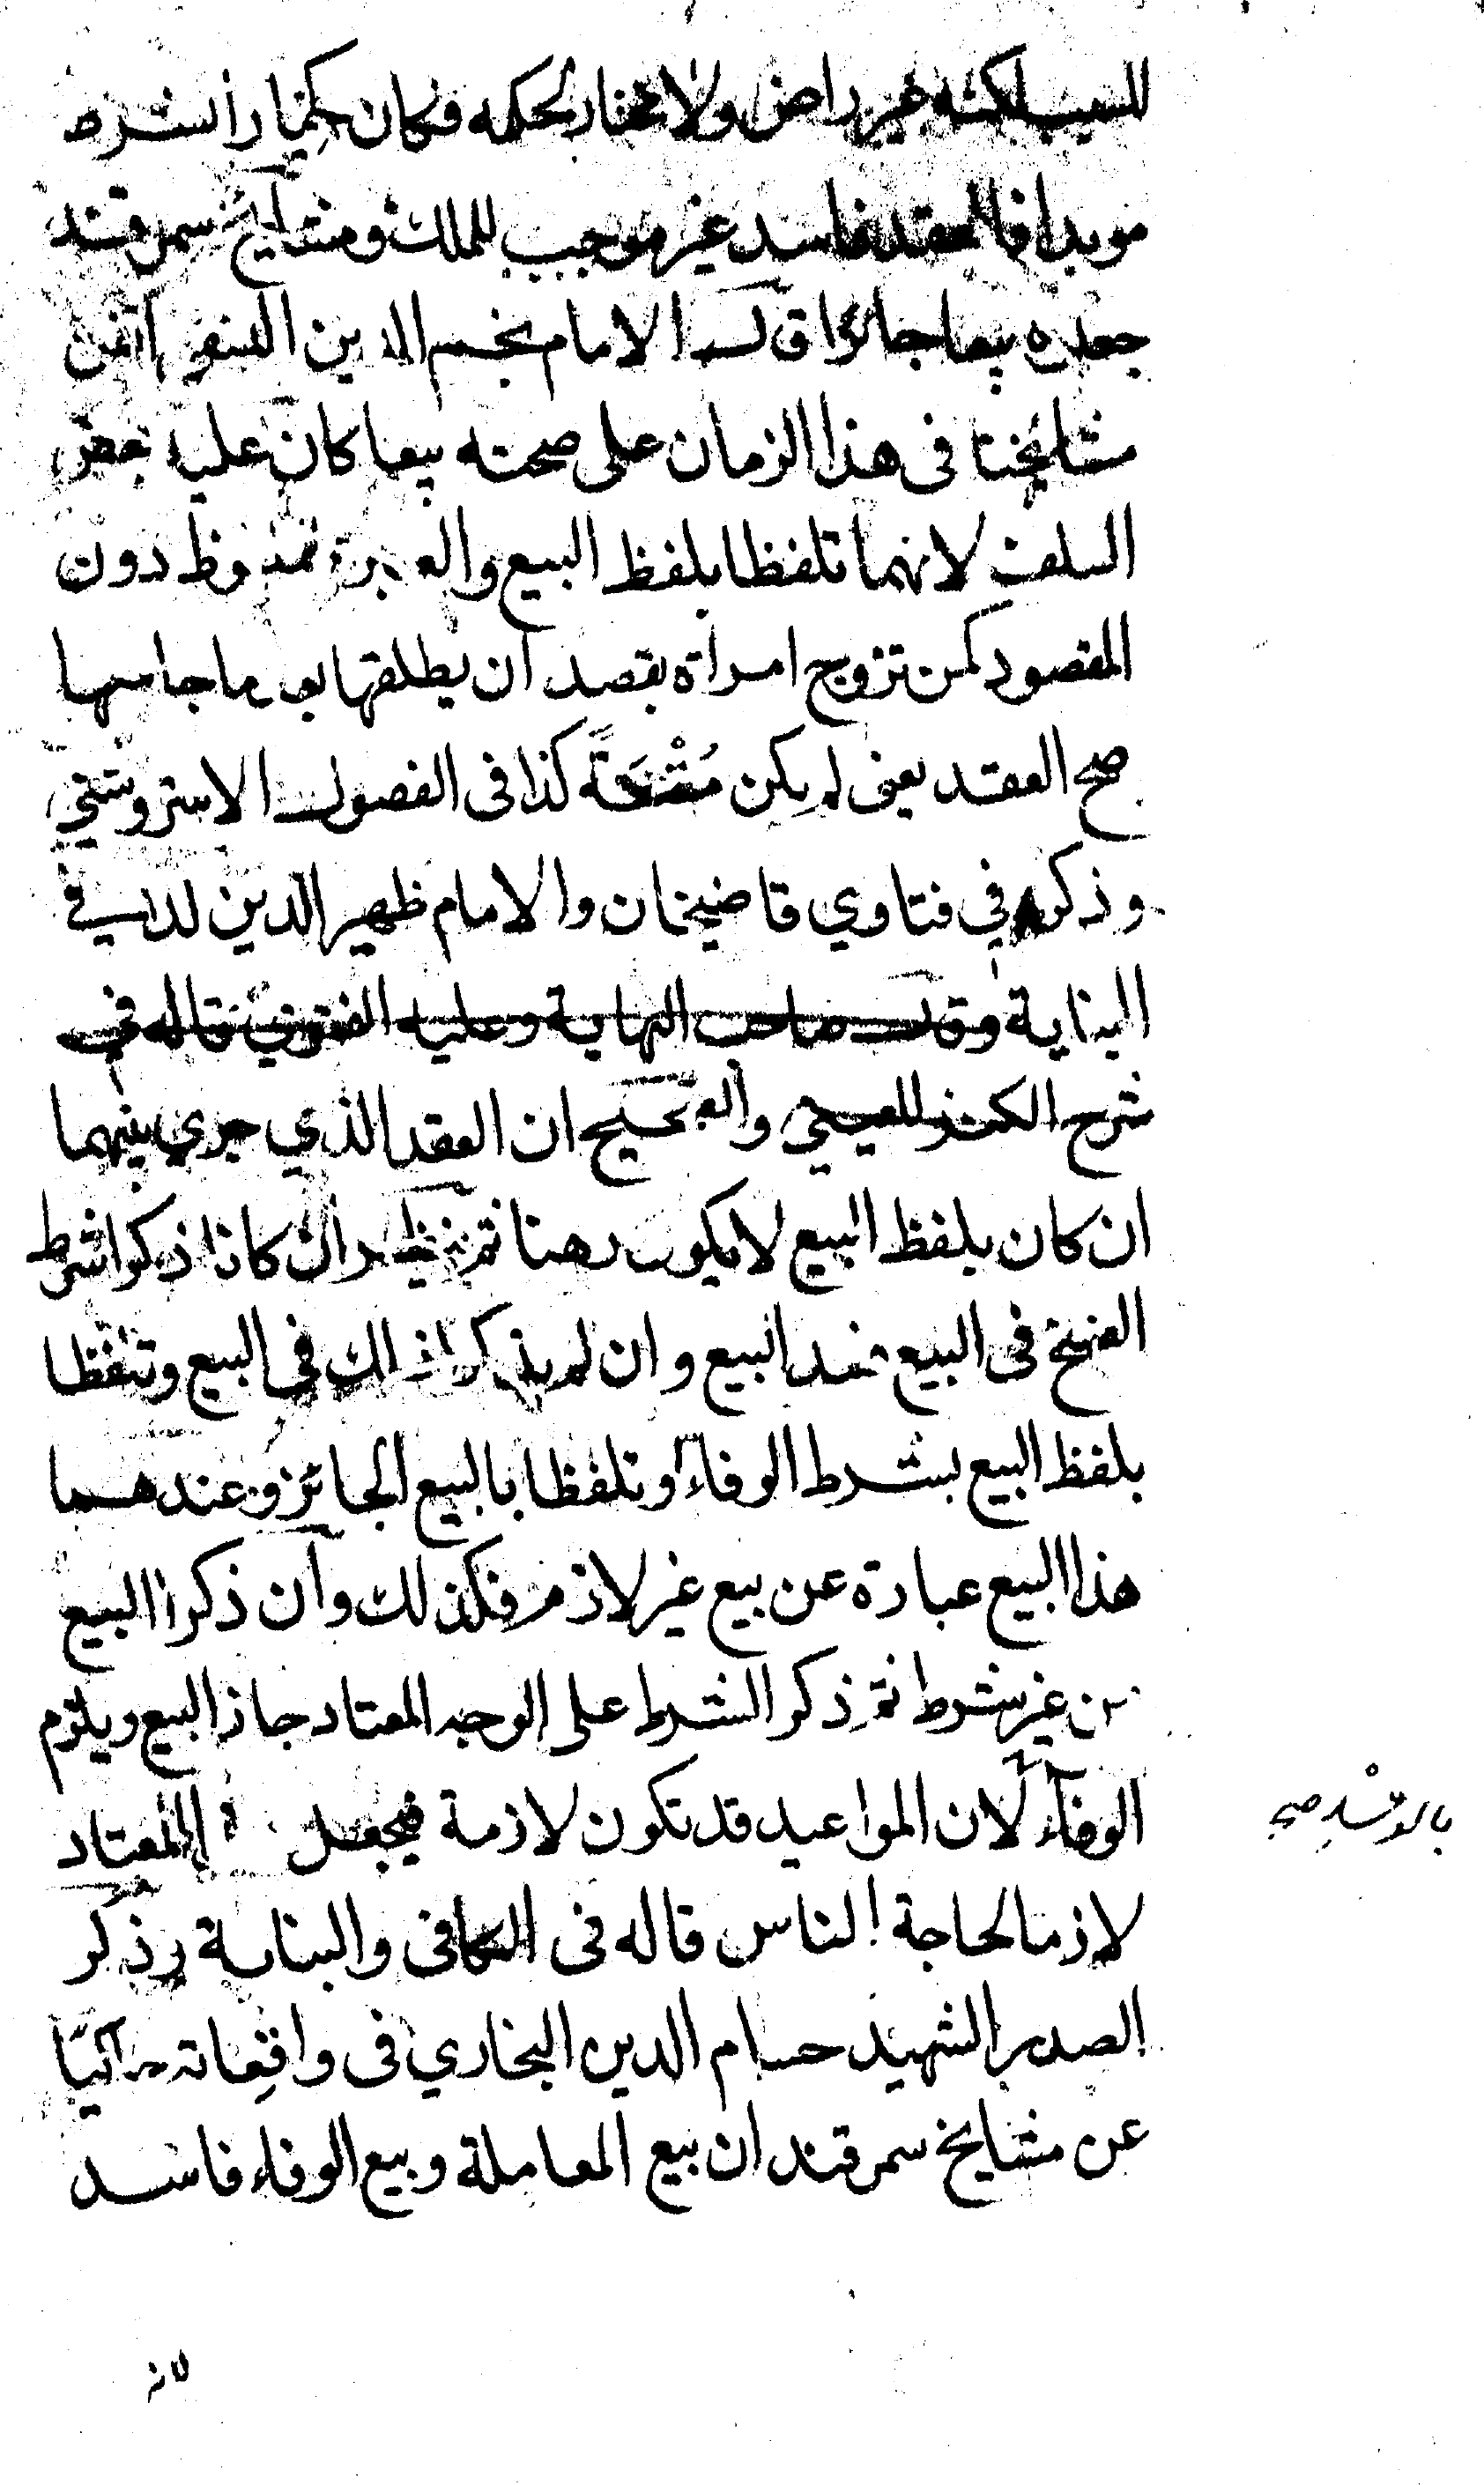 للسبب لكنه غير راض ولا مختار لحكمه فكان كخيار الشرط
موبدا فالعقد فاسد غير موجب للملك ومشايخ سمرقند
جعلوه بيعا جائزا قال الامام نجم الدين النسفي اتفق
مشايخنا في هذا الزمان على صحته بيعا كان عليه بعض
السلف لانهما تلفظا بلفظ البيع والعبرة للملفوظ دون
المقصود كمن تزوج امراة بقصد ان يطلقها بعد ما جامعها
صح العقد يعني لم يكن مُتْعَةً كذا في الفصول الاستروشني
وذكر في فتاوي قاضيخان والامام ظهير الدين لداب في
البناية وقال صاحب النهاية وعليه الفتوي قاله في
شرح الكنز للعيني والصحيح ان العقد الذي جري بينهما
ان كان بلفظ البيع لا يكون رهنا ثم ينظر ان كانا ذكرا شرط
الفسخ في البيع فسد البيع وان لم يذكرا ذلك في البيع وتلفظا
بلفظ البيع بشرط الوفاء او تلفظا بالبيع الجائز وعندهما
هذا البيع عبارة عن بيع غير لازم فكذلك وان ذكرا البيع
من غير شرط ثم ذكر الشرط على الوجه المعتاد جاز البيع ويلزم
الوفاء لان المواعيد قد تكون لازمة فيجعل المعتاد
لازما لحاجة الناس قاله في الكافي والبناية وذكر
الصدر الشهيد حسام الدين البخاري في واقعاته حاكيا
عن مشايخ سمرقند ان بيع المعاملة وبيع الوفاء فاسد
لانه